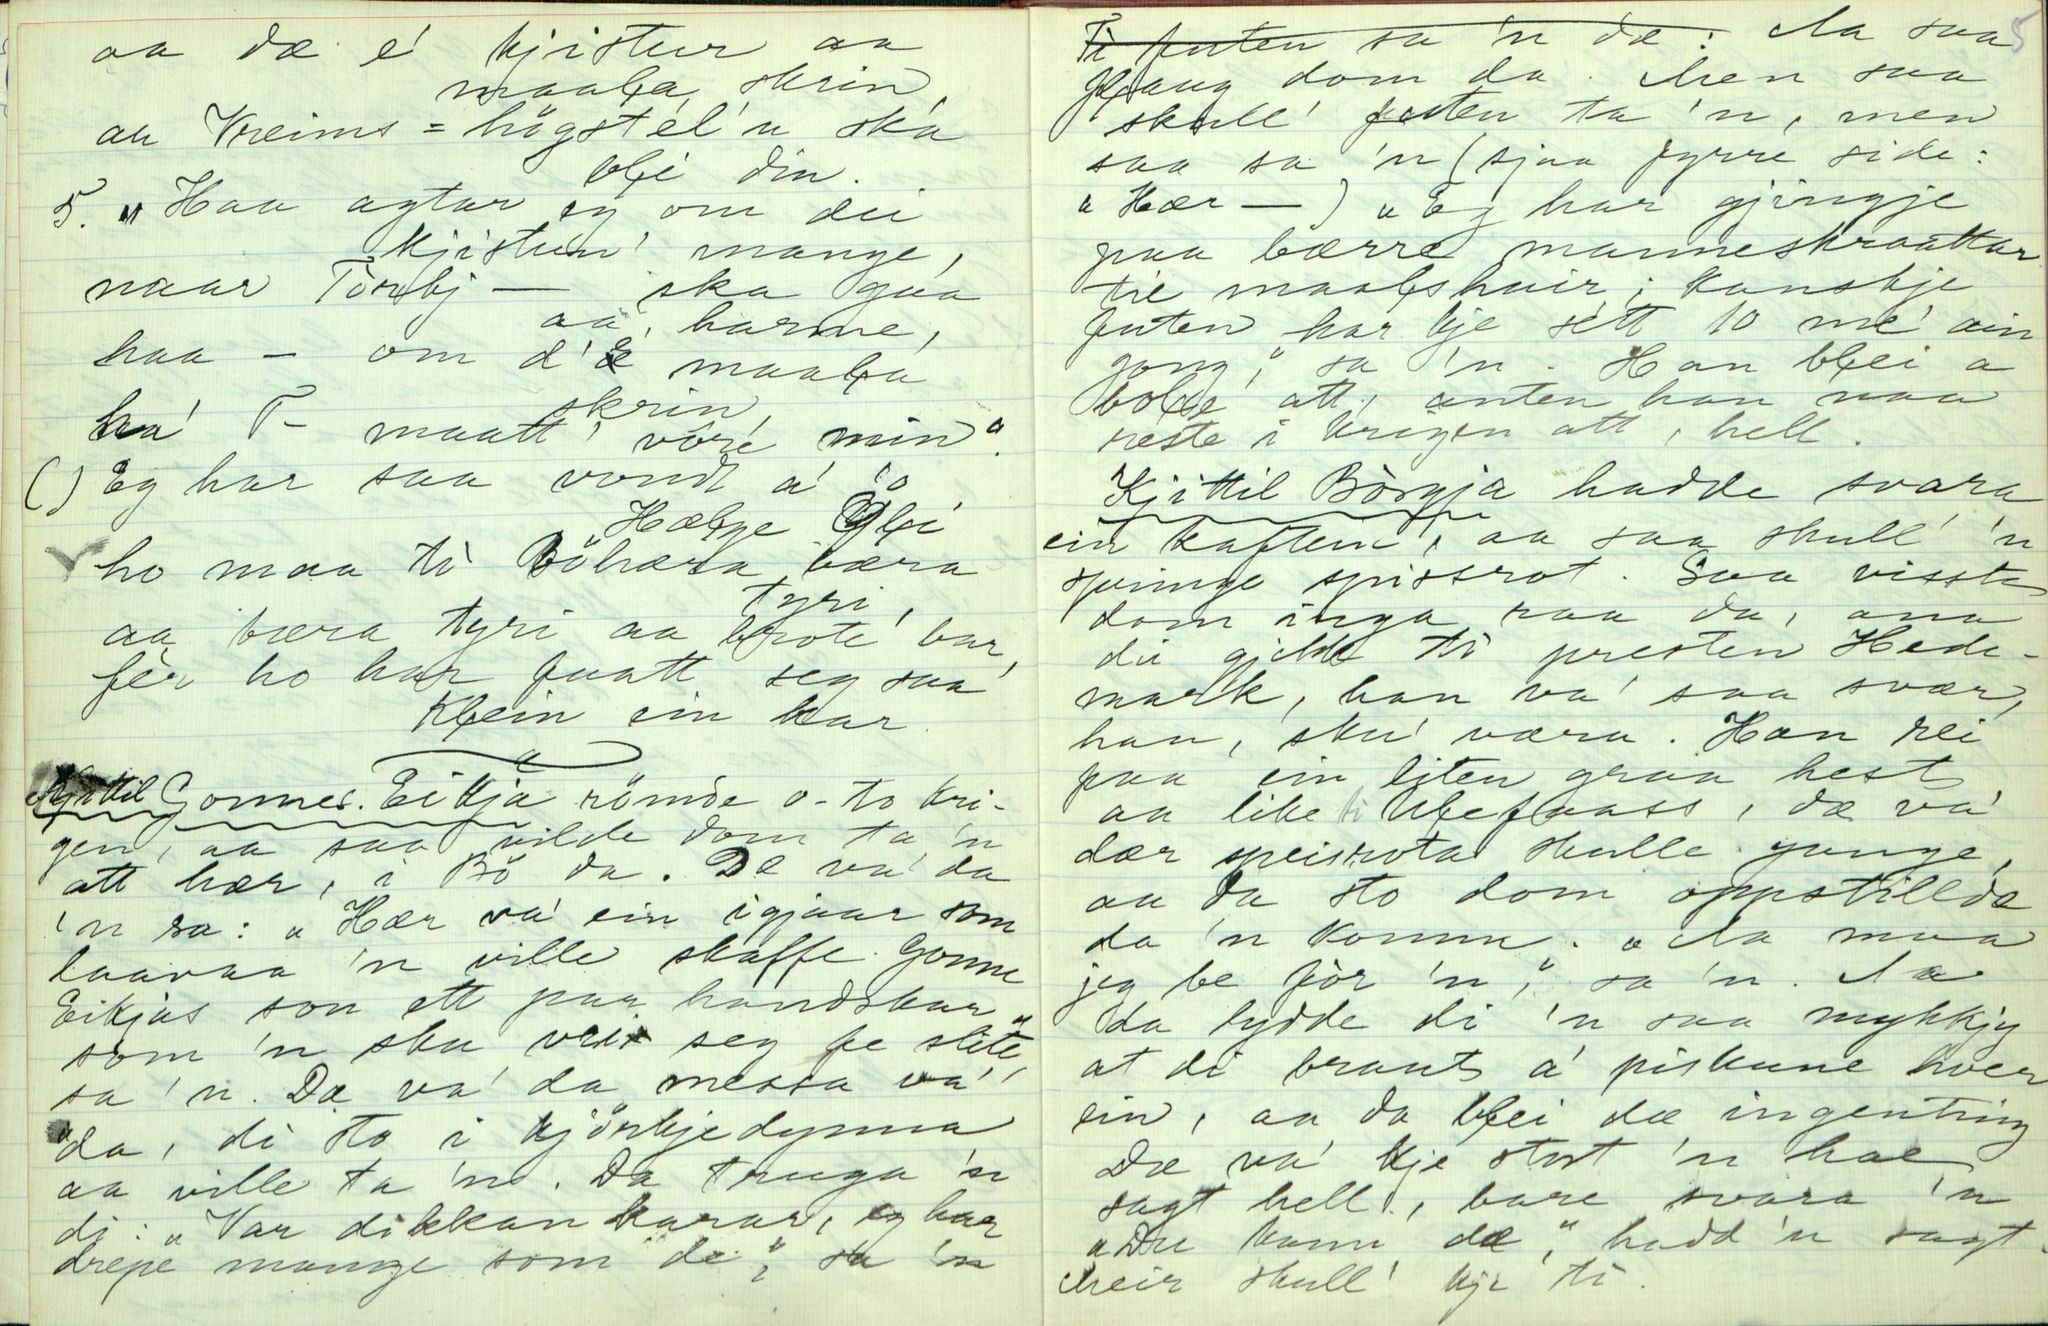 aa dæ é kjistur aa
maala skrin,
aa Vreims = högstél'n ska
blé din.
5. „Haa agtar eg om dei
kjistun' mange,
naar Torbj — ska gaa
aa' harme,
haa — om d' é maala
skrin,
há T— maatt' våre min".
() Eg har saa vondt a' jo
Hælge Øli
ho maa ti Böhæra bæra
tyri,
aa bæra tyri aa brote bar,
fér ho har faatt seg saa
klein ein kar.
Kjittil Gonnes. Eikja römde o- to kri-
gen, aa saa vilde dom ta 'n
att hær, i Bö da. Dæ va' da
'n sa: „Hær va' ein igjaar som
laavaa 'n ville skaffe Gonne
Eikjas son ett par handskar
som 'n sku vri seg fe slite",
sa 'n. Dæ va' da messa va'
da, di sto i kjörkjedynna
aa ville ta 'n. Da truga 'n
di: „Var dikkan karar, eg har
drepe mange som de", sa 'n
5
Ti futen sa 'n dæ: Aa saa
flaug dom da. Men saa
skull' futen ta 'n, men
saa sa 'n (sjaa fyrre side:
„Hær —) „Eg har gjingje
paa bærre manneskraattar
til maalshuir; kanskje
futen har kje sétt to mé ain
gong", sa 'n. Han blei a
bolle att, anten han naa
reste i krigen att, hell.
Kjittil Börgja hadde svara
ein kaftein, aa saa skull' 'n
springe spissrot. Saa visste
dom inga raa da, ana
di gjekk ti presten Hede-
mark, han va' saa svær,
han, sku' væra. Han rei
paa ein liten graa hest
aa like ti Ulefaass, dæ va'
dær speisrota skulle gange,
aa da sto dom oppstillda
da 'n komm. „Aa maa
jeg beför 'n", sa 'n. Aa
da lydde di 'n saa mykkjy
at di braut a' piskune hver
ein, aa da blei dæ ingenting
Dæ va' kje stort 'n hae
sagt hell., bare svara 'n
„Du kann dæ", hadd 'n sagt.
Meir skull' kje ti.